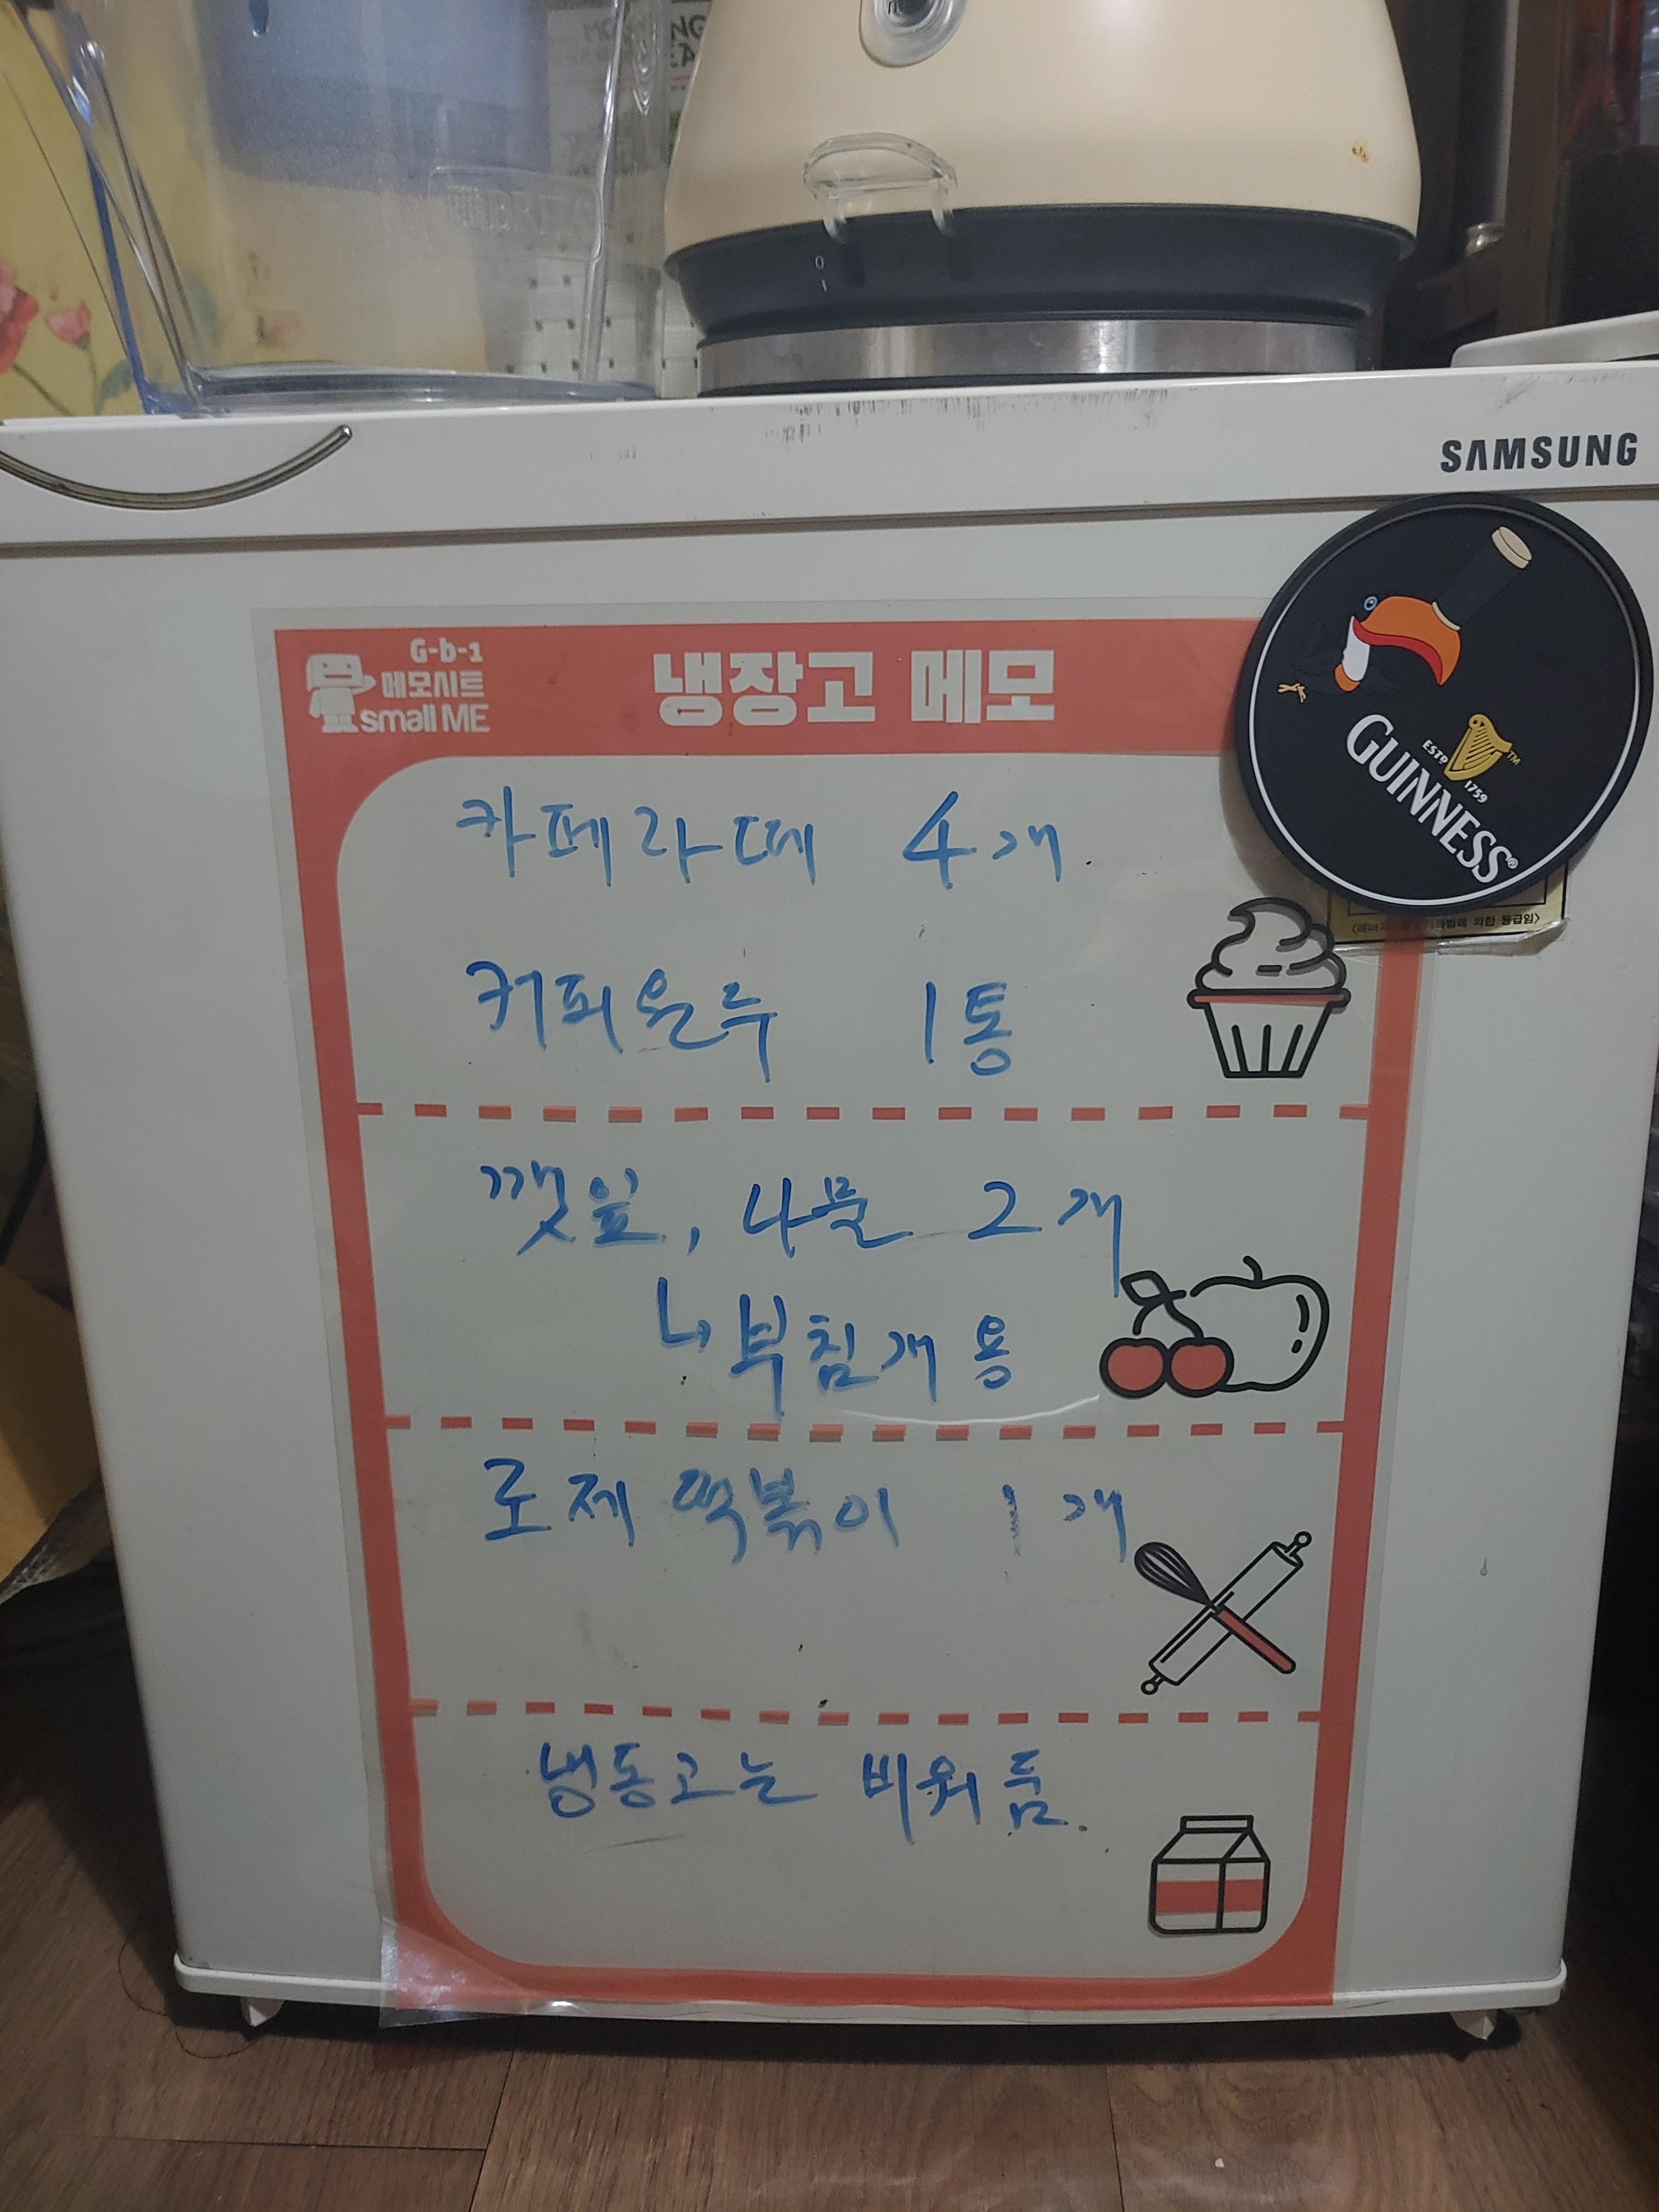 SAMSUNG
G-b-1
메모시트
small ME
냉장고 메모
ESTD 1759
GUINNESS
카페라떼 4개
커피원두 1통
깻잎, 나물 2개
↳ 부침개용
로제 떡볶이 1개
냉동고는 비워둠.